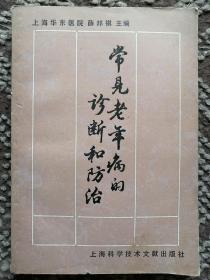 上海华东医院 薛邦祺 主编
常见老年病的
诊断和防治
上海科学技术文献出版社